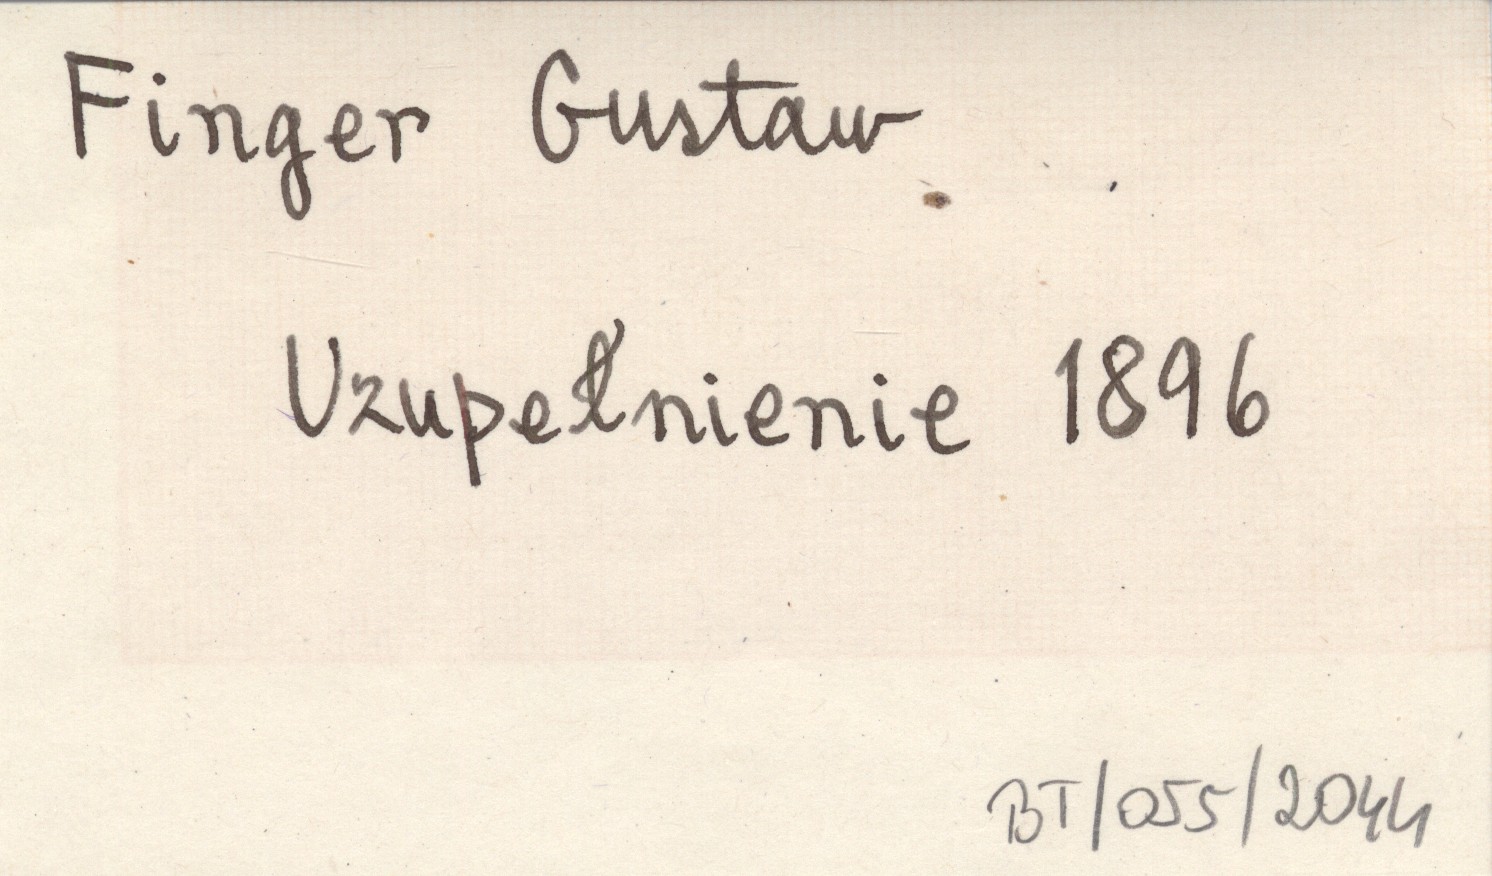 Finger Gustaw
Uzupełnienie 1896
BT/055/2044